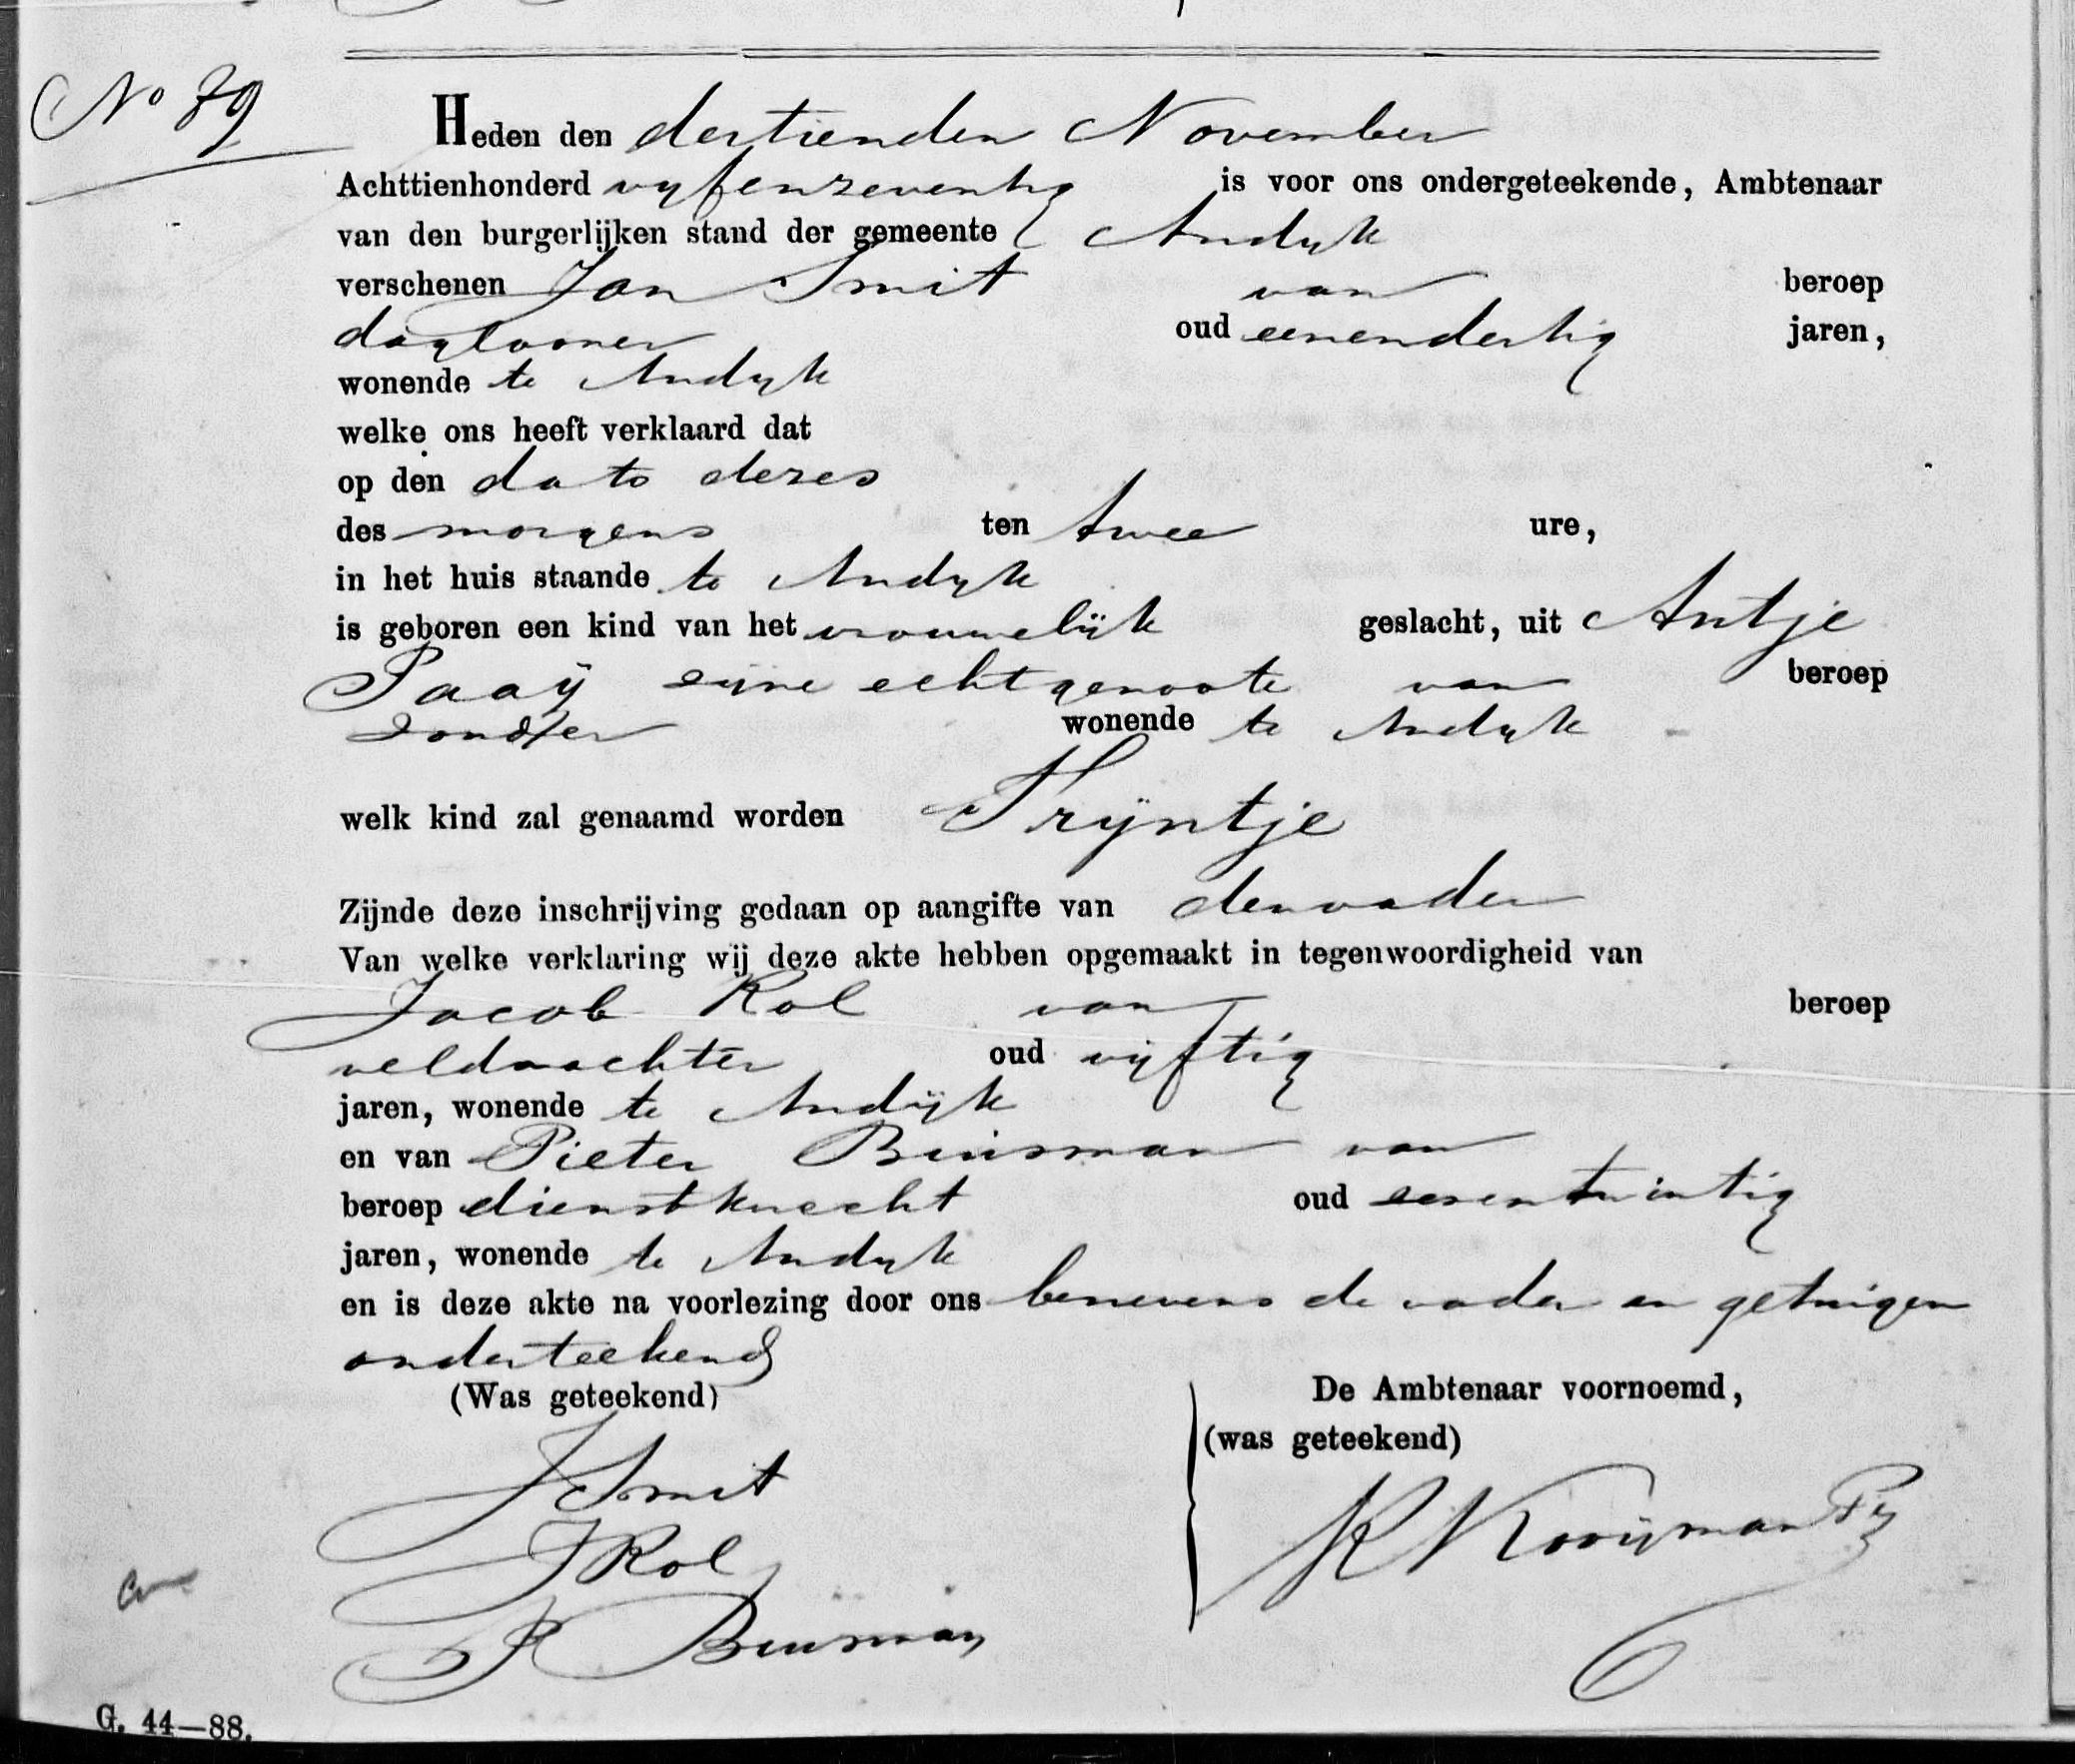 No 79
Heden den dertienden November
Achttienhonderd vyfenzeventig is voor ons ondergeteekende, Ambtenaar
van den burgerlijken stand der gemeente Andyk
verschenen Jan Smit van beroep
daglooner oud eenendertig jaren,
wonende te Andyk
welke ons heeft verklaard dat
op den dato dezes
des morgens ten twee ure,
in het huis staande te Andyk
is geboren een kind van het vrouwelijk geslacht, uit Antje
Paaij zijne echtgenoote van beroep
zonder wonende te Andyk
welk kind zal genaamd worden Trijntje
Zijnde deze inschrijving gedaan op aangifte van den vader
Van welke verklaring wij deze akte hebben opgemaakt in tegenwoordigheid van
Jacob Kol van beroep
veldwachter oud vijftig
jaren, wonende te Andijk
en van Pieter Buisman van
beroep dienstknecht oud zesentwintig
jaren, wonende te Andyk
en is deze akte na voorlezing door ons benevens de vader en getuigen
onderteekend
(Was geteekend) De Ambtenaar voornoemd,
(was geteekend)
J Smit
J Kol
P Buisman
K Kooijman Pz
G. 44—88.